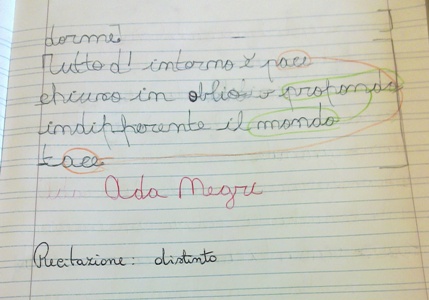 dorme
Tutto d'intorno è pace
chiuso in oblio profondo
indifferente il mondo
tace
Ada Negri
Recitazione: distinto